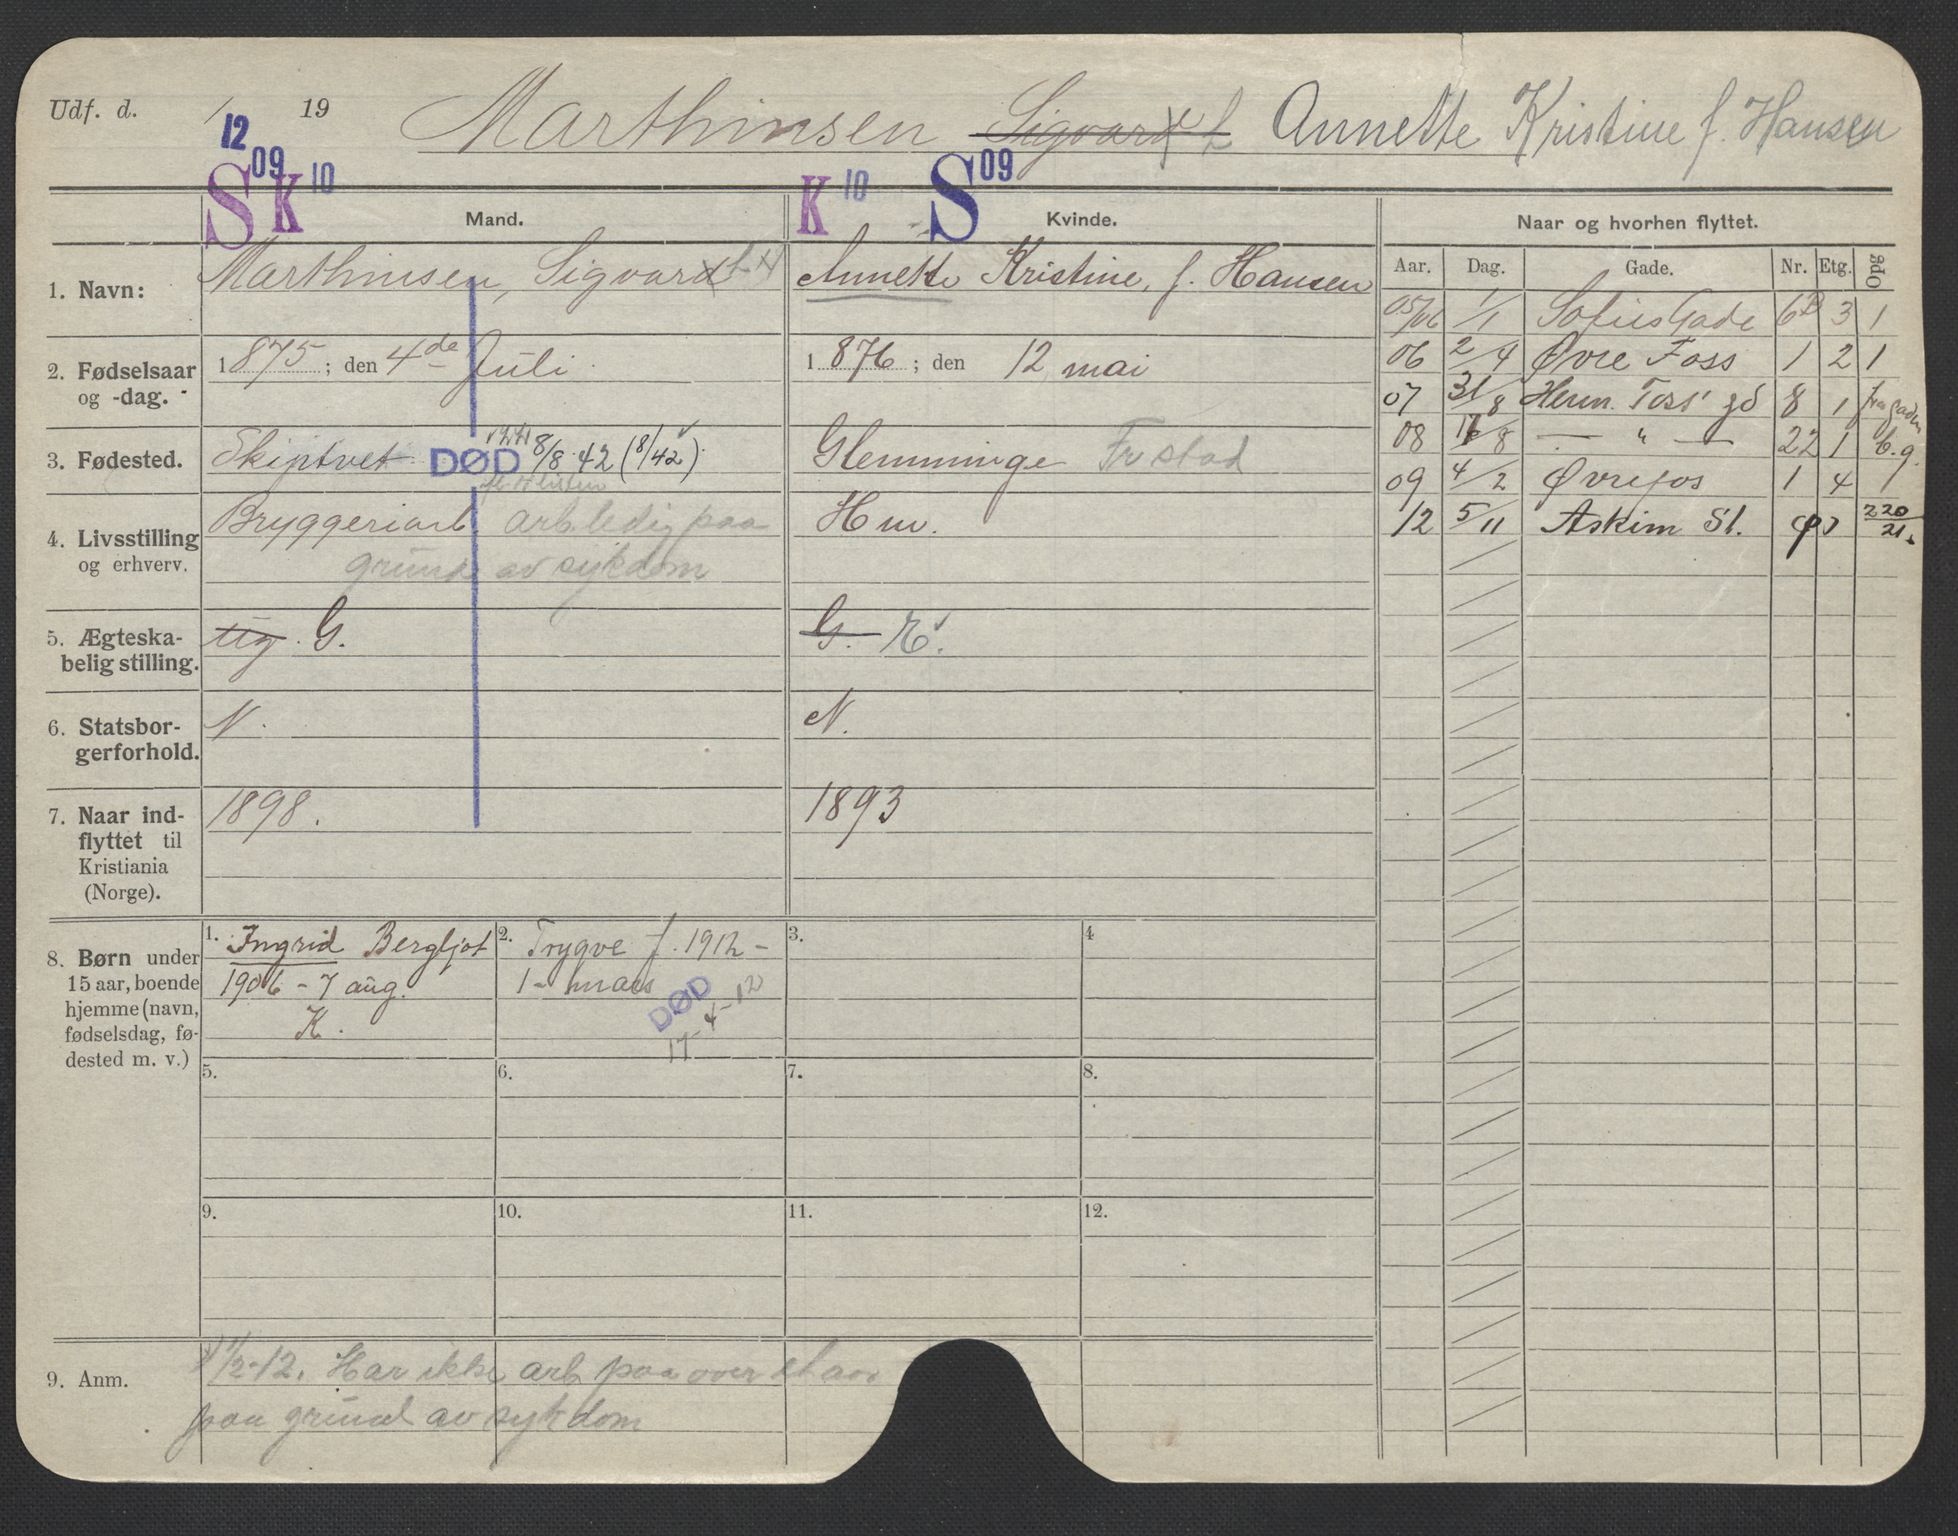 Udf. d. / 19 Marthinsen Sigvard Annette Kristine f. Hansen
12
09 10 10 09
S K K S
Mand. Kvinde. Naar og hvorhen flyttet.
Aar. Dag. Gade. Nr. Etg. Opg
1. Navn: Marthinsen, Sigvard Annette Kristine, f. Hansen
05/06 1/1 Sofies Gade 6B 3 1
2. Fødselsaar og -dag. 1875; den 4de Juli 1876; den 12 mai
06 2/4 Øvre Foss 1 2 1
07 31/8 Herm. Foss' gd 8 1
08 /8 — " — 22 1 b.g.
3. Fødested. Skiptvet DØD 8/8 42 (8/42) Glemminge Fr stad
09 4/2 Øvrefos 1 4 1
4. Livsstilling og erhverv. Bryggeriarb. arb.ledig paa Hm.
grund av sykdom
12 5/11 Askim St. 220/21.
5. Ægteska-
belig stilling. ug. G. G. E.
6. Statsbor-
gerforhold. N. N.
7. Naar ind-
flyttet til
Kristiania
(Norge). 1898. 1893
8. Børn under
15 aar, boende
hjemme (navn,
fødselsdag, fø-
dested m. v.)
1. Ingrid Bergljot
1906 - 7 aug.
K.
2. Trygve f. 1912 -
1- mars
DØD
17-4-12
3.
4
5.
6.
7.
8.
9.
10.
11.
12.
9. Anm. 1/2-12. Har ikke arb. paa over
paa grund av sykdom